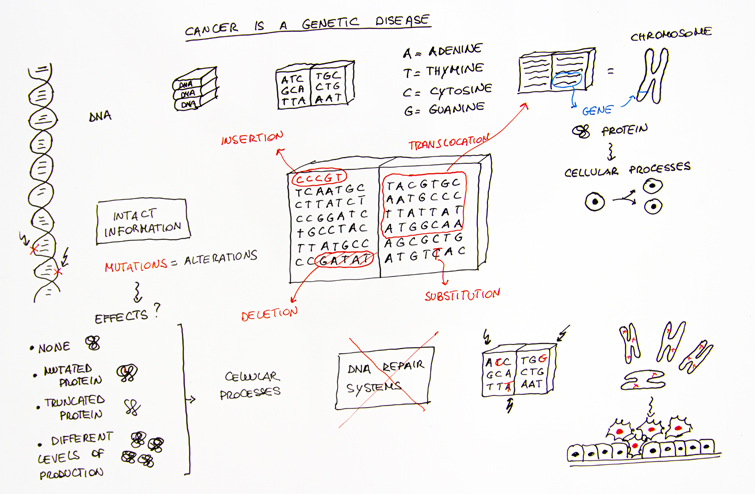 CANCER IS A GENETIC DISEASE
DNA
DNA
DNA
DNA
ATC TGC
GCA CTG
TTA AAT
A = ADENINE
T = THYMINE
C = CYTOSINE
G = GUANINE
=
CHROMOSOME
GENE
PROTEIN
CELLULAR PROCESSES
INSERTION
TRANSLOCATION
CCCGT TACGTGC
TCAATGC AATGCCC
CTTATCT TTATTAT
CCGGATC ATGGCAA
TGCCTAC AGCGCTG
TTATGCC ATGTCAC
CCGATAT
DELETION
SUBSTITUTION
INTACT
INFORMATION
MUTATIONS = ALTERATIONS
EFFECTS?
• NONE
• MUTATED
PROTEIN
• TRUNCATED
PROTEIN
• DIFFERENT
LEVELS OF
PRODUCTION
CELLULAR
PROCESSES
DNA REPAIR
SYSTEMS
ACC TGG
GCA CTG
TTA AAT